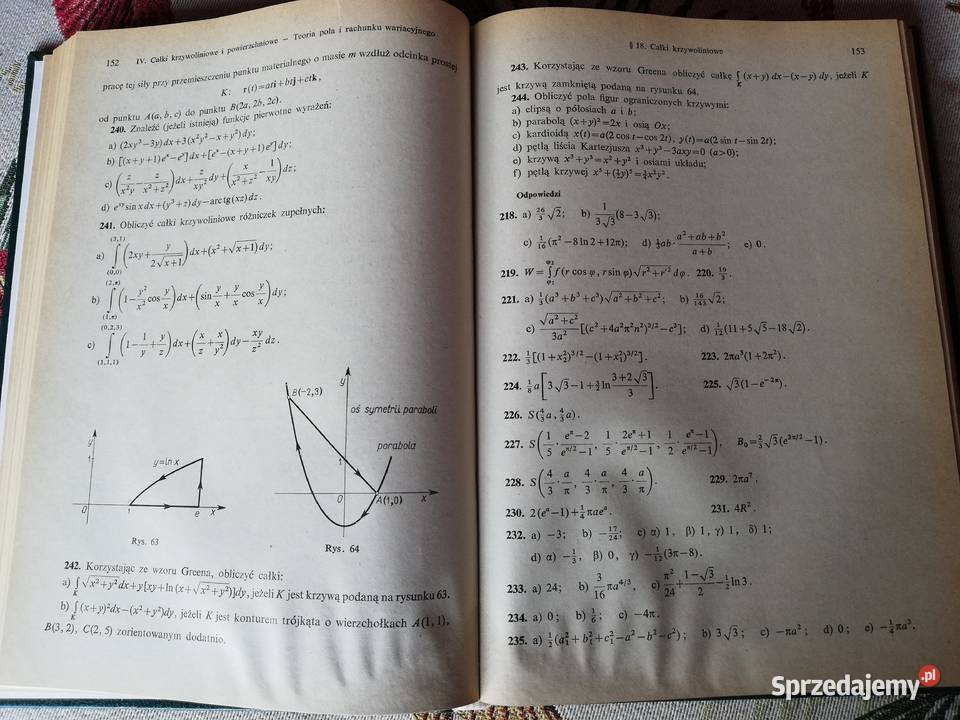 152 IV. Całki krzywoliniowe i powierzchniowe – Teoria pola i rachunku wariacyjnego
pracę tej siły przy przemieszczeniu punktu materialnego o masie m wzdłuż odcinka prostej
K: r(t)=ati+btj+ctk,
od punktu A(a, b, c) do punktu B(2a, 2b, 2c).
240. Znaleźć (jeżeli istnieją) funkcje pierwotne wyrażeń:
a) (2xy³−3y)dx+3(x²y²−x+y²)dy;
b) [(x+y+1)eˣ−eʸ]dx+[eˣ−(x+y+1)eʸ]dy;
c) (z/(x²y) − z/(x²+z²))dx + z/(xy²) dy + (x/(x²+z²) − 1/(xy))dz;
d) eˣʸ sin x dx+(y³+z)dy−arctg(xz)dz.
241. Obliczyć całki krzywoliniowe różniczek zupełnych:
a) ∫_(0,0)^(3,1) (2xy + y/(2√(x+1)))dx+(x²+√(x+1))dy;
b) ∫_(1,π)^(2,π) (1 − y²/x² cos y/x)dx+(sin y/x + y/x cos y/x)dy;
c) ∫_(1,1,1)^(0,2,3) (1 − 1/y + y/z)dx+(x/z + x/y²)dy − xy/z² dz.
y
1
y=ln x
0
1
e
x
Rys. 63
B(−2,3)
y
oś symetrii paraboli
parabola
1
0
A(1,0)
x
Rys. 64
242. Korzystając ze wzoru Greena, obliczyć całki:
a) ∫_K √(x²+y²)dx+y[xy+ln(x+√(x²+y²))]dy, jeżeli K jest krzywą podaną na rysunku 63.
b) ∫_K (x+y)²dx−(x²+y²)dy, jeżeli K jest konturem trójkąta o wierzchołkach A(1, 1),
B(3, 2), C(2, 5) zorientowanym dodatnio.
§ 18. Całki krzywoliniowe 153
243. Korzystając ze wzoru Greena obliczyć całkę ∫_K (x+y) dx−(x−y) dy, jeżeli K
jest krzywą zamkniętą podaną na rysunku 64.
244. Obliczyć pola figur ograniczonych krzywymi:
a) elipsą o półosiach a i b;
b) parabolą (x+y)²=2x i osią Ox;
c) kardioidą x(t)=a(2 cos t−cos 2t), y(t)=a(2 sin t−sin 2t);
d) pętlą liścia Kartezjusza x³+y³−3axy=0 (a>0);
e) krzywą x³+y³=x²+y² i osiami układu;
Odpowiedzi
218. a) 26/3 √2; b) 1/(3√3) (8−3√3);
c) 1/16 (π²−8 ln 2+12π); d) ⅓ab·(a²+ab+b²)/(a+b); e) 0.
219. W=∫_φ₁^φ₂ f(r cos φ, r sin φ)√(r²+r'²) dφ. 220. 19/3.
221. a) ⅓(a³+b³+c³)√(a²+b²+c²); b) 16/143 √2;
c) √(a²+c²)/(3a²) [(c²+4a²π²n²)^(3/2)−c²]; d) 1/12 (11+5√5−18√2).
222. ⅓[(1+x₂²)^(3/2)−(1+x₁²)^(3/2)]. 223. 2πa³(1+2π²).
224. ⅛a[3√3−1+3/2 ln (3+2√3)/3]. 225. √3(1−e^(−2π)).
226. S(4/3 a, 4/3 a).
227. S(1/5·(e^π−2)/(e^(π/2)−1), 1/5·(2e^π+1)/(e^(π/2)−1), 1/2·(e^π−1)/(e^(π/2)−1)). B₀=⅔√3(e^(3π/2)−1).
228. S(4/3·a/π, 4/3·a/π, 4/3·a/π). 229. 2πa⁷.
230. 2(eᵃ−1)+¼πaeᵃ. 231. 4R².
232. a) −3; b) −17/24; c) α) 1, β) 1, γ) 1, δ) 1;
d) α) −⅓, β) 0, γ) −1/12(3π−8).
233. a) 24; b) 3/16 πa^(4/3), c) π²/24+(1−√3)/2−½ln 3.
234. a) 0; b) ⅙; c) −4π.
235. a) ½(a₁²+b₁²+c₁²−a²−b²−c²); b) 3√3; c) −πa²; d) 0; e) −¼πa².
Sprzedajemy.pl